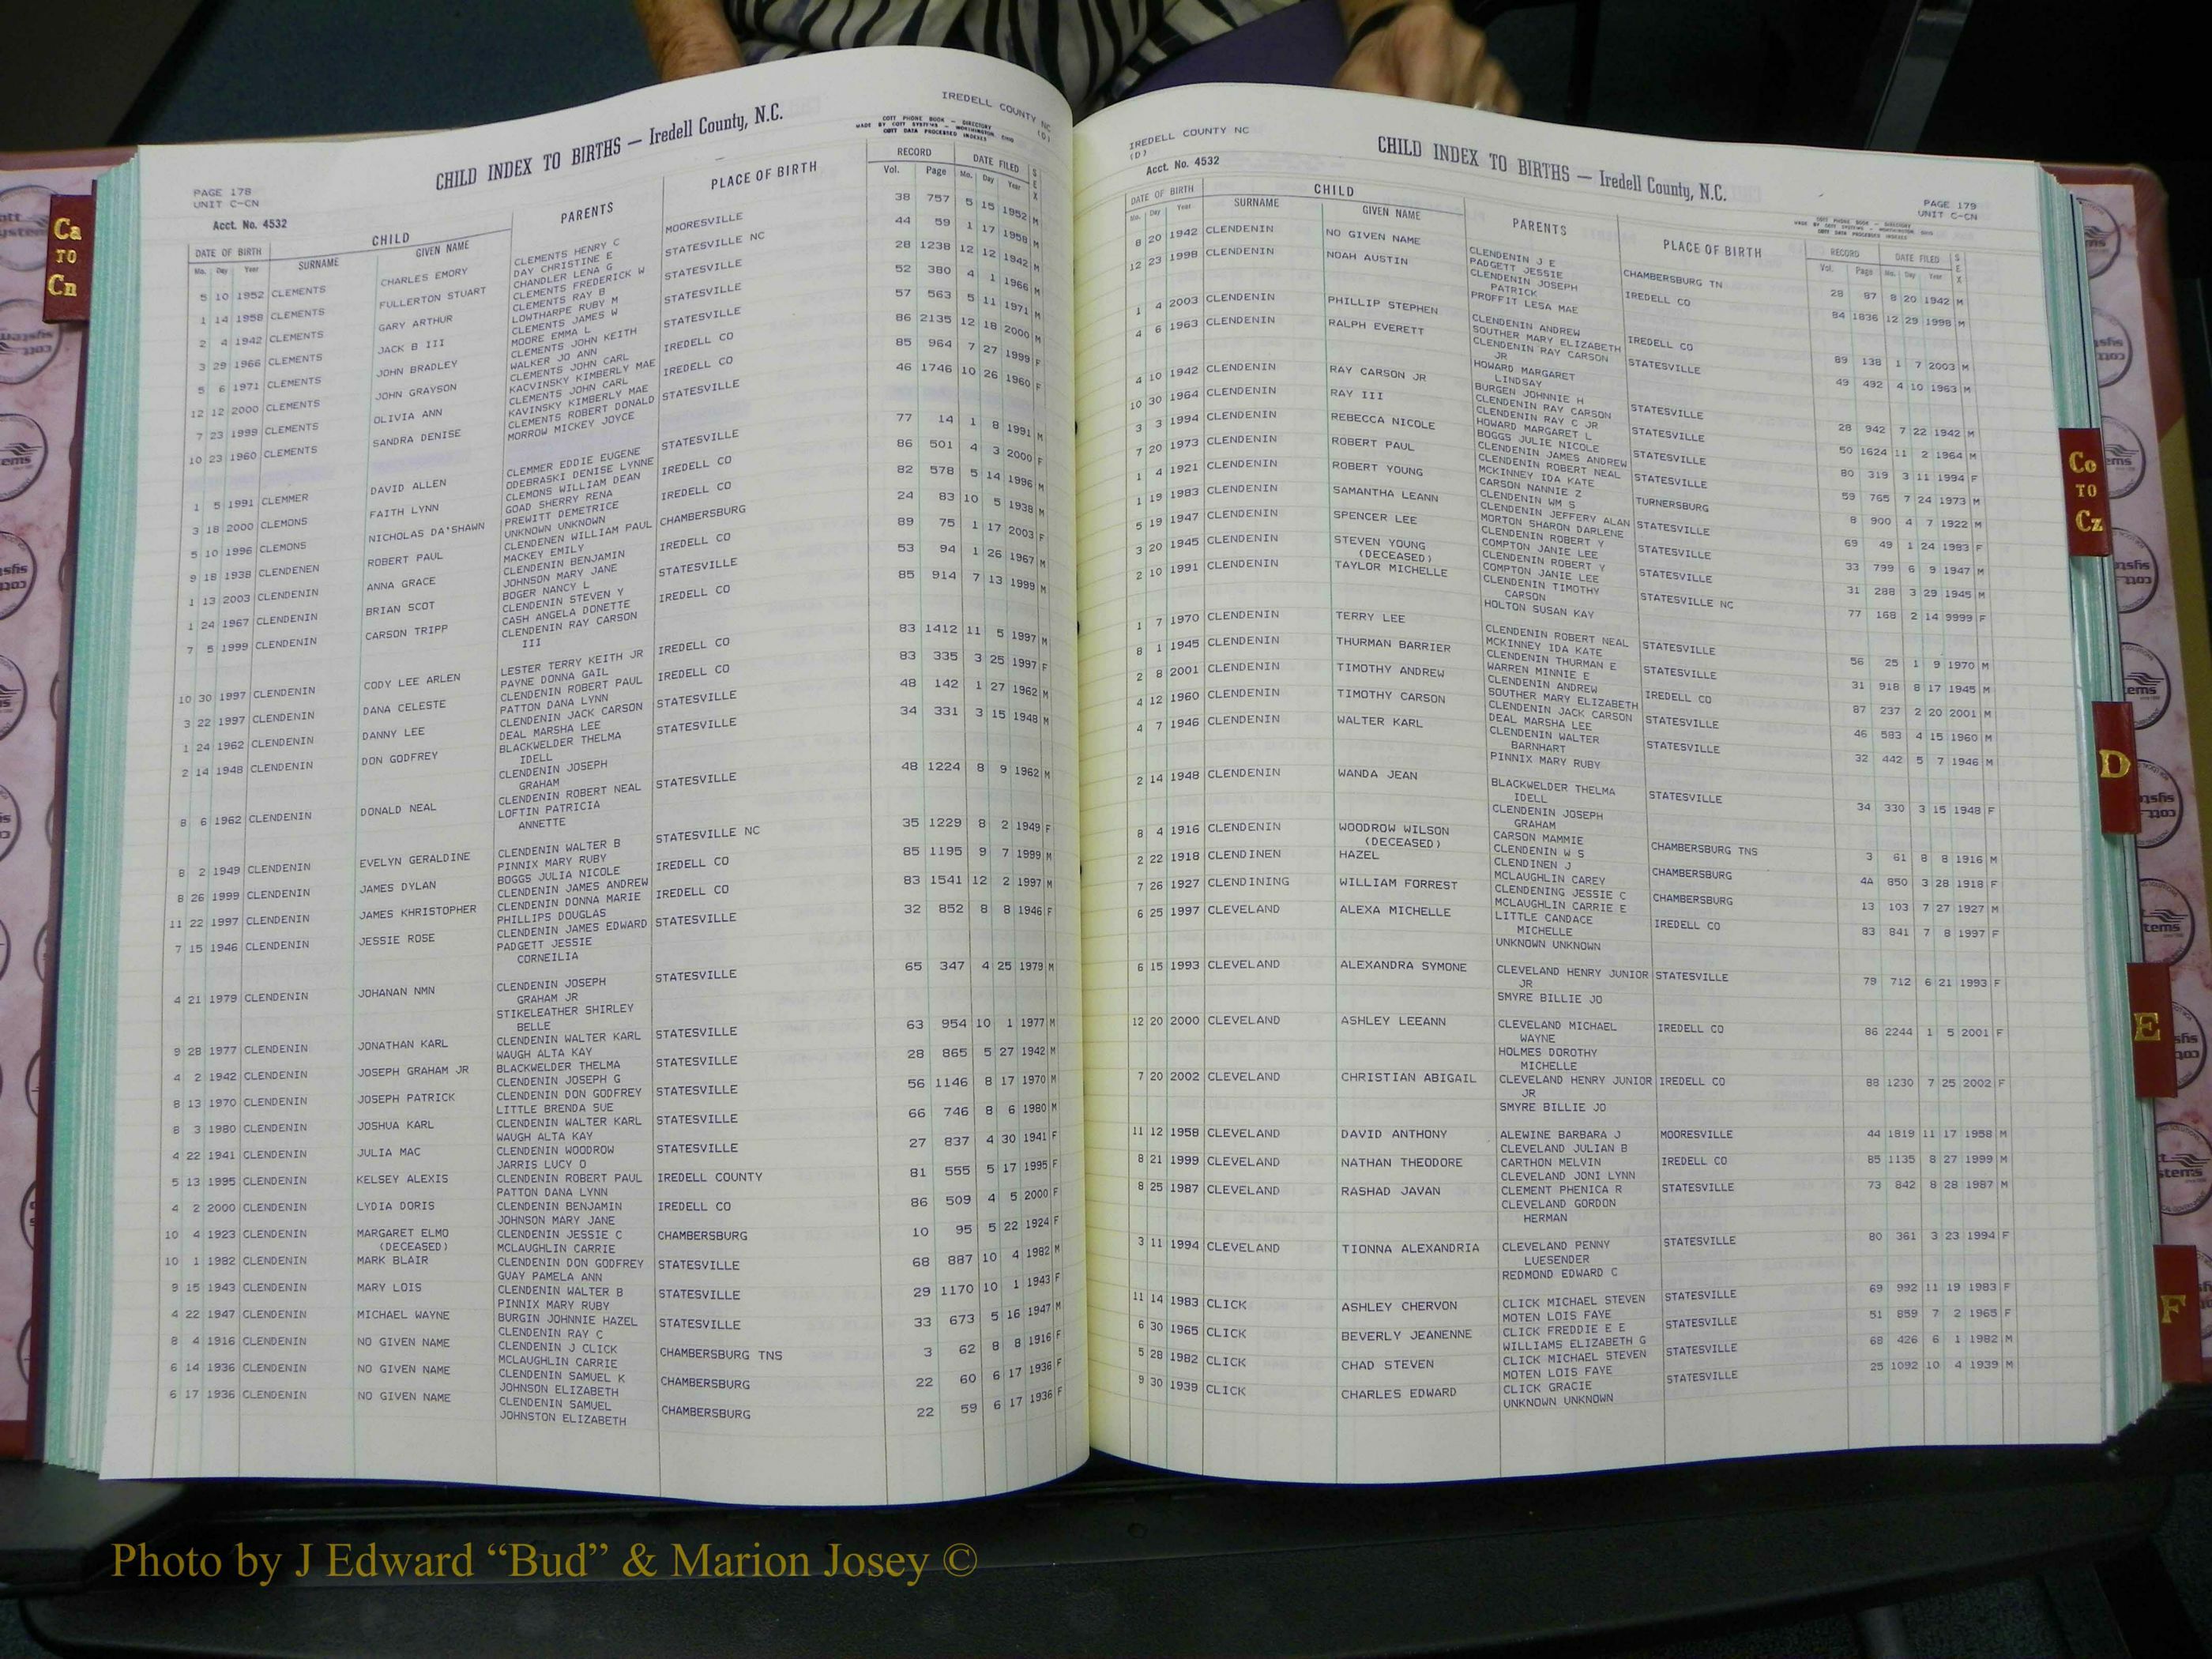 IREDELL COUNTY NC
(D)
CHILD INDEX TO BIRTHS — Iredell County, N.C.
COTT PHONE BOOK — DIRECTORY
MADE BY COTT SYSTEMS — WORTHINGTON, OHIO
COTT DATA PROCESSED INDEXES
PAGE 178
UNIT C-CN
Acct. No. 4532
DATE OF BIRTH CHILD PARENTS PLACE OF BIRTH RECORD DATE FILED SEX
Mo. Day Year SURNAME GIVEN NAME Vol. Page Mo. Day Year
5 10 1952 CLEMENTS CHARLES EMORY CLEMENTS HENRY C MOORESVILLE 38 757 5 15 1952 M
DAY CHRISTINE E
1 14 1958 CLEMENTS FULLERTON STUART CHANDLER LENA G STATESVILLE NC 44 59 1 17 1958 M
CLEMENTS FREDERICK W
2 4 1942 CLEMENTS GARY ARTHUR CLEMENTS RAY B STATESVILLE 28 1238 12 12 1942 M
LOWTHARPE RUBY M
3 29 1966 CLEMENTS JACK B III CLEMENTS JAMES W STATESVILLE 52 380 4 1 1966 M
MOORE EMMA L
5 6 1971 CLEMENTS JOHN BRADLEY CLEMENTS JOHN KEITH STATESVILLE 57 563 5 11 1971 M
WALKER JO ANN
12 12 2000 CLEMENTS JOHN GRAYSON CLEMENTS JOHN CARL IREDELL CO 86 2135 12 18 2000 M
KACVINSKY KIMBERLY MAE
7 23 1999 CLEMENTS OLIVIA ANN CLEMENTS JOHN CARL IREDELL CO 85 964 7 27 1999 F
KAVINSKY KIMBERLY MAE
10 23 1960 CLEMENTS SANDRA DENISE CLEMENTS ROBERT DONALD STATESVILLE 46 1746 10 26 1960 F
MORROW MICKEY JOYCE
1 5 1991 CLEMMER DAVID ALLEN CLEMMER EDDIE EUGENE STATESVILLE 77 14 1 8 1991 M
ODEBRASKI DENISE LYNNE
3 18 2000 CLEMONS FAITH LYNN CLEMONS WILLIAM DEAN IREDELL CO 86 501 4 3 2000 F
GOAD SHERRY RENA
5 10 1996 CLEMONS NICHOLAS DA'SHAWN PREWITT DEMETRICE IREDELL CO 82 578 5 14 1996 M
UNKNOWN UNKNOWN
9 18 1938 CLENDENEN ROBERT PAUL CLENDENEN WILLIAM PAUL CHAMBERSBURG 24 83 10 5 1938 M
MACKEY EMILY
1 13 2003 CLENDENIN ANNA GRACE CLENDENIN BENJAMIN IREDELL CO 89 75 1 17 2003 F
JOHNSON MARY JANE
1 24 1967 CLENDENIN BRIAN SCOT BOGER NANCY L STATESVILLE 53 94 1 26 1967 M
CLENDENIN STEVEN Y
7 5 1999 CLENDENIN CARSON TRIPP CASH ANGELA DONETTE IREDELL CO 85 914 7 13 1999 M
CLENDENIN RAY CARSON
III
10 30 1997 CLENDENIN CODY LEE ARLEN LESTER TERRY KEITH JR IREDELL CO 83 1412 11 5 1997 M
PAYNE DONNA GAIL
3 22 1997 CLENDENIN DANA CELESTE CLENDENIN ROBERT PAUL IREDELL CO 83 335 3 25 1997 F
PATTON DANA LYNN
1 24 1962 CLENDENIN DANNY LEE CLENDENIN JACK CARSON STATESVILLE 48 142 1 27 1962 M
DEAL MARSHA LEE
2 14 1948 CLENDENIN DON GODFREY BLACKWELDER THELMA STATESVILLE 34 331 3 15 1948 M
IDELL
CLENDENIN JOSEPH
GRAHAM
8 6 1962 CLENDENIN DONALD NEAL CLENDENIN ROBERT NEAL STATESVILLE 48 1224 8 9 1962 M
LOFTIN PATRICIA
ANNETTE
8 2 1949 CLENDENIN EVELYN GERALDINE CLENDENIN WALTER B STATESVILLE NC 35 1229 8 2 1949 F
PINNIX MARY RUBY
8 26 1999 CLENDENIN JAMES DYLAN BOGGS JULIA NICOLE IREDELL CO 85 1195 9 7 1999 M
CLENDENIN JAMES ANDREW
11 22 1997 CLENDENIN JAMES KHRISTOPHER CLENDENIN DONNA MARIE IREDELL CO 83 1541 12 2 1997 M
PHILLIPS DOUGLAS
7 15 1946 CLENDENIN JESSIE ROSE CLENDENIN JAMES EDWARD STATESVILLE 32 852 8 8 1946 F
PADGETT JESSIE
CORNEILIA
4 21 1979 CLENDENIN JOHANAN NMN CLENDENIN JOSEPH STATESVILLE 65 347 4 25 1979 M
GRAHAM JR
STIKELEATHER SHIRLEY
BELLE
9 28 1977 CLENDENIN JONATHAN KARL CLENDENIN WALTER KARL STATESVILLE 63 954 10 1 1977 M
WAUGH ALTA KAY
4 2 1942 CLENDENIN JOSEPH GRAHAM JR BLACKWELDER THELMA STATESVILLE 28 865 5 27 1942 M
CLENDENIN JOSEPH G
8 13 1970 CLENDENIN JOSEPH PATRICK CLENDENIN DON GODFREY STATESVILLE 56 1146 8 17 1970 M
LITTLE BRENDA SUE
8 3 1980 CLENDENIN JOSHUA KARL CLENDENIN WALTER KARL STATESVILLE 66 746 8 6 1980 M
WAUGH ALTA KAY
4 22 1941 CLENDENIN JULIA MAC CLENDENIN WOODROW STATESVILLE 27 837 4 30 1941 F
JARRIS LUCY O
5 13 1995 CLENDENIN KELSEY ALEXIS CLENDENIN ROBERT PAUL IREDELL COUNTY 81 555 5 17 1995 F
PATTON DANA LYNN
4 2 2000 CLENDENIN LYDIA DORIS CLENDENIN BENJAMIN IREDELL CO 86 509 4 5 2000 F
JOHNSON MARY JANE
10 4 1923 CLENDENIN MARGARET ELMO CLENDENIN JESSIE C CHAMBERSBURG 10 95 5 22 1924 F
(DECEASED) MCLAUGHLIN CARRIE
10 1 1982 CLENDENIN MARK BLAIR CLENDENIN DON GODFREY STATESVILLE 68 887 10 4 1982 M
GUAY PAMELA ANN
9 15 1943 CLENDENIN MARY LOIS CLENDENIN WALTER B STATESVILLE 29 1170 10 1 1943 F
PINNIX MARY RUBY
4 22 1947 CLENDENIN MICHAEL WAYNE BURGIN JOHNNIE HAZEL STATESVILLE 33 673 5 16 1947 M
CLENDENIN RAY C
8 4 1916 CLENDENIN NO GIVEN NAME CLENDENIN J CLICK CHAMBERSBURG TNS 3 62 8 8 1916 F
MCLAUGHLIN CARRIE
6 14 1936 CLENDENIN NO GIVEN NAME CLENDENIN SAMUEL K CHAMBERSBURG 22 60 6 17 1936 F
JOHNSON ELIZABETH
6 17 1936 CLENDENIN NO GIVEN NAME CLENDENIN SAMUEL CHAMBERSBURG 22 59 6 17 1936 F
JOHNSTON ELIZABETH
IREDELL COUNTY NC
(D)
Acct. No. 4532
CHILD INDEX TO BIRTHS — Iredell County, N.C.
PAGE 179
UNIT C-CN
COTT PHONE BOOK — DIRECTORY
MADE BY COTT SYSTEMS — WORTHINGTON, OHIO
COTT DATA PROCESSED INDEXES
DATE OF BIRTH CHILD PARENTS PLACE OF BIRTH RECORD DATE FILED SEX
Mo. Day Year SURNAME GIVEN NAME Vol. Page Mo. Day Year
8 20 1942 CLENDENIN NO GIVEN NAME CLENDENIN J E CHAMBERSBURG TN 28 87 8 20 1942 M
PADGETT JESSIE
12 23 1998 CLENDENIN NOAH AUSTIN CLENDENIN JOSEPH IREDELL CO 84 1836 12 29 1998 M
PATRICK
PROFFIT LESA MAE
1 4 2003 CLENDENIN PHILLIP STEPHEN CLENDENIN ANDREW IREDELL CO 89 138 1 7 2003 M
SOUTHER MARY ELIZABETH
4 6 1963 CLENDENIN RALPH EVERETT CLENDENIN RAY CARSON STATESVILLE 49 492 4 10 1963 M
JR
HOWARD MARGARET
LINDSAY
4 10 1942 CLENDENIN RAY CARSON JR BURGEN JOHNNIE H STATESVILLE 28 942 7 22 1942 M
CLENDENIN RAY CARSON
10 30 1964 CLENDENIN RAY III CLENDENIN RAY C JR STATESVILLE 50 1624 11 2 1964 M
HOWARD MARGARET L
3 3 1994 CLENDENIN REBECCA NICOLE BOGGS JULIE NICOLE STATESVILLE 80 319 3 11 1994 F
CLENDENIN JAMES ANDREW
7 20 1973 CLENDENIN ROBERT PAUL CLENDENIN ROBERT NEAL STATESVILLE 59 765 7 24 1973 M
MCKINNEY IDA KATE
1 4 1921 CLENDENIN ROBERT YOUNG CARSON NANNIE Z TURNERSBURG 8 900 4 7 1922 M
CLENDENIN WM S
1 19 1983 CLENDENIN SAMANTHA LEANN CLENDENIN JEFFERY ALAN STATESVILLE 69 49 1 24 1983 F
MORTON SHARON DARLENE
5 19 1947 CLENDENIN SPENCER LEE CLENDENIN ROBERT Y STATESVILLE 33 799 6 9 1947 M
COMPTON JANIE LEE
3 20 1945 CLENDENIN STEVEN YOUNG CLENDENIN ROBERT Y STATESVILLE 31 288 3 29 1945 M
(DECEASED) COMPTON JANIE LEE
2 10 1991 CLENDENIN TAYLOR MICHELLE CLENDENIN TIMOTHY STATESVILLE NC 77 168 2 14 9999 F
CARSON
HOLTON SUSAN KAY
1 7 1970 CLENDENIN TERRY LEE CLENDENIN ROBERT NEAL STATESVILLE 56 25 1 9 1970 M
MCKINNEY IDA KATE
8 1 1945 CLENDENIN THURMAN BARRIER CLENDENIN THURMAN E STATESVILLE 31 918 8 17 1945 M
WARREN MINNIE E
2 8 2001 CLENDENIN TIMOTHY ANDREW CLENDENIN ANDREW IREDELL CO 87 237 2 20 2001 M
SOUTHER MARY ELIZABETH
4 12 1960 CLENDENIN TIMOTHY CARSON CLENDENIN JACK CARSON STATESVILLE 46 583 4 15 1960 M
DEAL MARSHA LEE
4 7 1946 CLENDENIN WALTER KARL CLENDENIN WALTER STATESVILLE 32 442 5 7 1946 M
BARNHART
PINNIX MARY RUBY
2 14 1948 CLENDENIN WANDA JEAN BLACKWELDER THELMA STATESVILLE 34 330 3 15 1948 F
IDELL
CLENDENIN JOSEPH
GRAHAM
8 4 1916 CLENDENIN WOODROW WILSON CARSON MAMMIE CHAMBERSBURG TNS 3 61 8 8 1916 M
(DECEASED) CLENDENIN W S
2 22 1918 CLENDINEN HAZEL CLENDINEN J CHAMBERSBURG 4A 850 3 28 1918 F
MCLAUGHLIN CAREY
7 26 1927 CLENDINING WILLIAM FORREST CLENDENING JESSIE C CHAMBERSBURG 13 103 7 27 1927 M
MCLAUGHLIN CARRIE E
6 25 1997 CLEVELAND ALEXA MICHELLE LITTLE CANDACE IREDELL CO 83 841 7 8 1997 F
MICHELLE
UNKNOWN UNKNOWN
6 15 1993 CLEVELAND ALEXANDRA SYMONE CLEVELAND HENRY JUNIOR STATESVILLE 79 712 6 21 1993 F
JR
SMYRE BILLIE JO
12 20 2000 CLEVELAND ASHLEY LEEANN CLEVELAND MICHAEL IREDELL CO 86 2244 1 5 2001 F
WAYNE
HOLMES DOROTHY
MICHELLE
7 20 2002 CLEVELAND CHRISTIAN ABIGAIL CLEVELAND HENRY JUNIOR IREDELL CO 88 1230 7 25 2002 F
JR
SMYRE BILLIE JO
11 12 1958 CLEVELAND DAVID ANTHONY ALEWINE BARBARA J MOORESVILLE 44 1819 11 17 1958 M
CLEVELAND JULIAN B
8 21 1999 CLEVELAND NATHAN THEODORE CARTHON MELVIN IREDELL CO 85 1135 8 27 1999 M
CLEVELAND JONI LYNN
8 25 1987 CLEVELAND RASHAD JAVAN CLEMENT PHENICA R STATESVILLE 73 842 8 28 1987 M
CLEVELAND GORDON
HERMAN
3 11 1994 CLEVELAND TIONNA ALEXANDRIA CLEVELAND PENNY STATESVILLE 80 361 3 23 1994 F
LUESENDER
REDMOND EDWARD C
11 14 1983 CLICK ASHLEY CHERVON CLICK MICHAEL STEVEN STATESVILLE 69 992 11 19 1983 F
MOTEN LOIS FAYE
6 30 1965 CLICK BEVERLY JEANENNE CLICK FREDDIE E E STATESVILLE 51 859 7 2 1965 F
WILLIAMS ELIZABETH G
5 28 1982 CLICK CHAD STEVEN CLICK MICHAEL STEVEN STATESVILLE 68 426 6 1 1982 M
MOTEN LOIS FAYE
9 30 1939 CLICK CHARLES EDWARD CLICK GRACIE STATESVILLE 25 1092 10 4 1939 M
UNKNOWN UNKNOWN
Ca
TO
Cn
Co
TO
Cz
D
E
F
Photo by J Edward “Bud” & Marion Josey ©